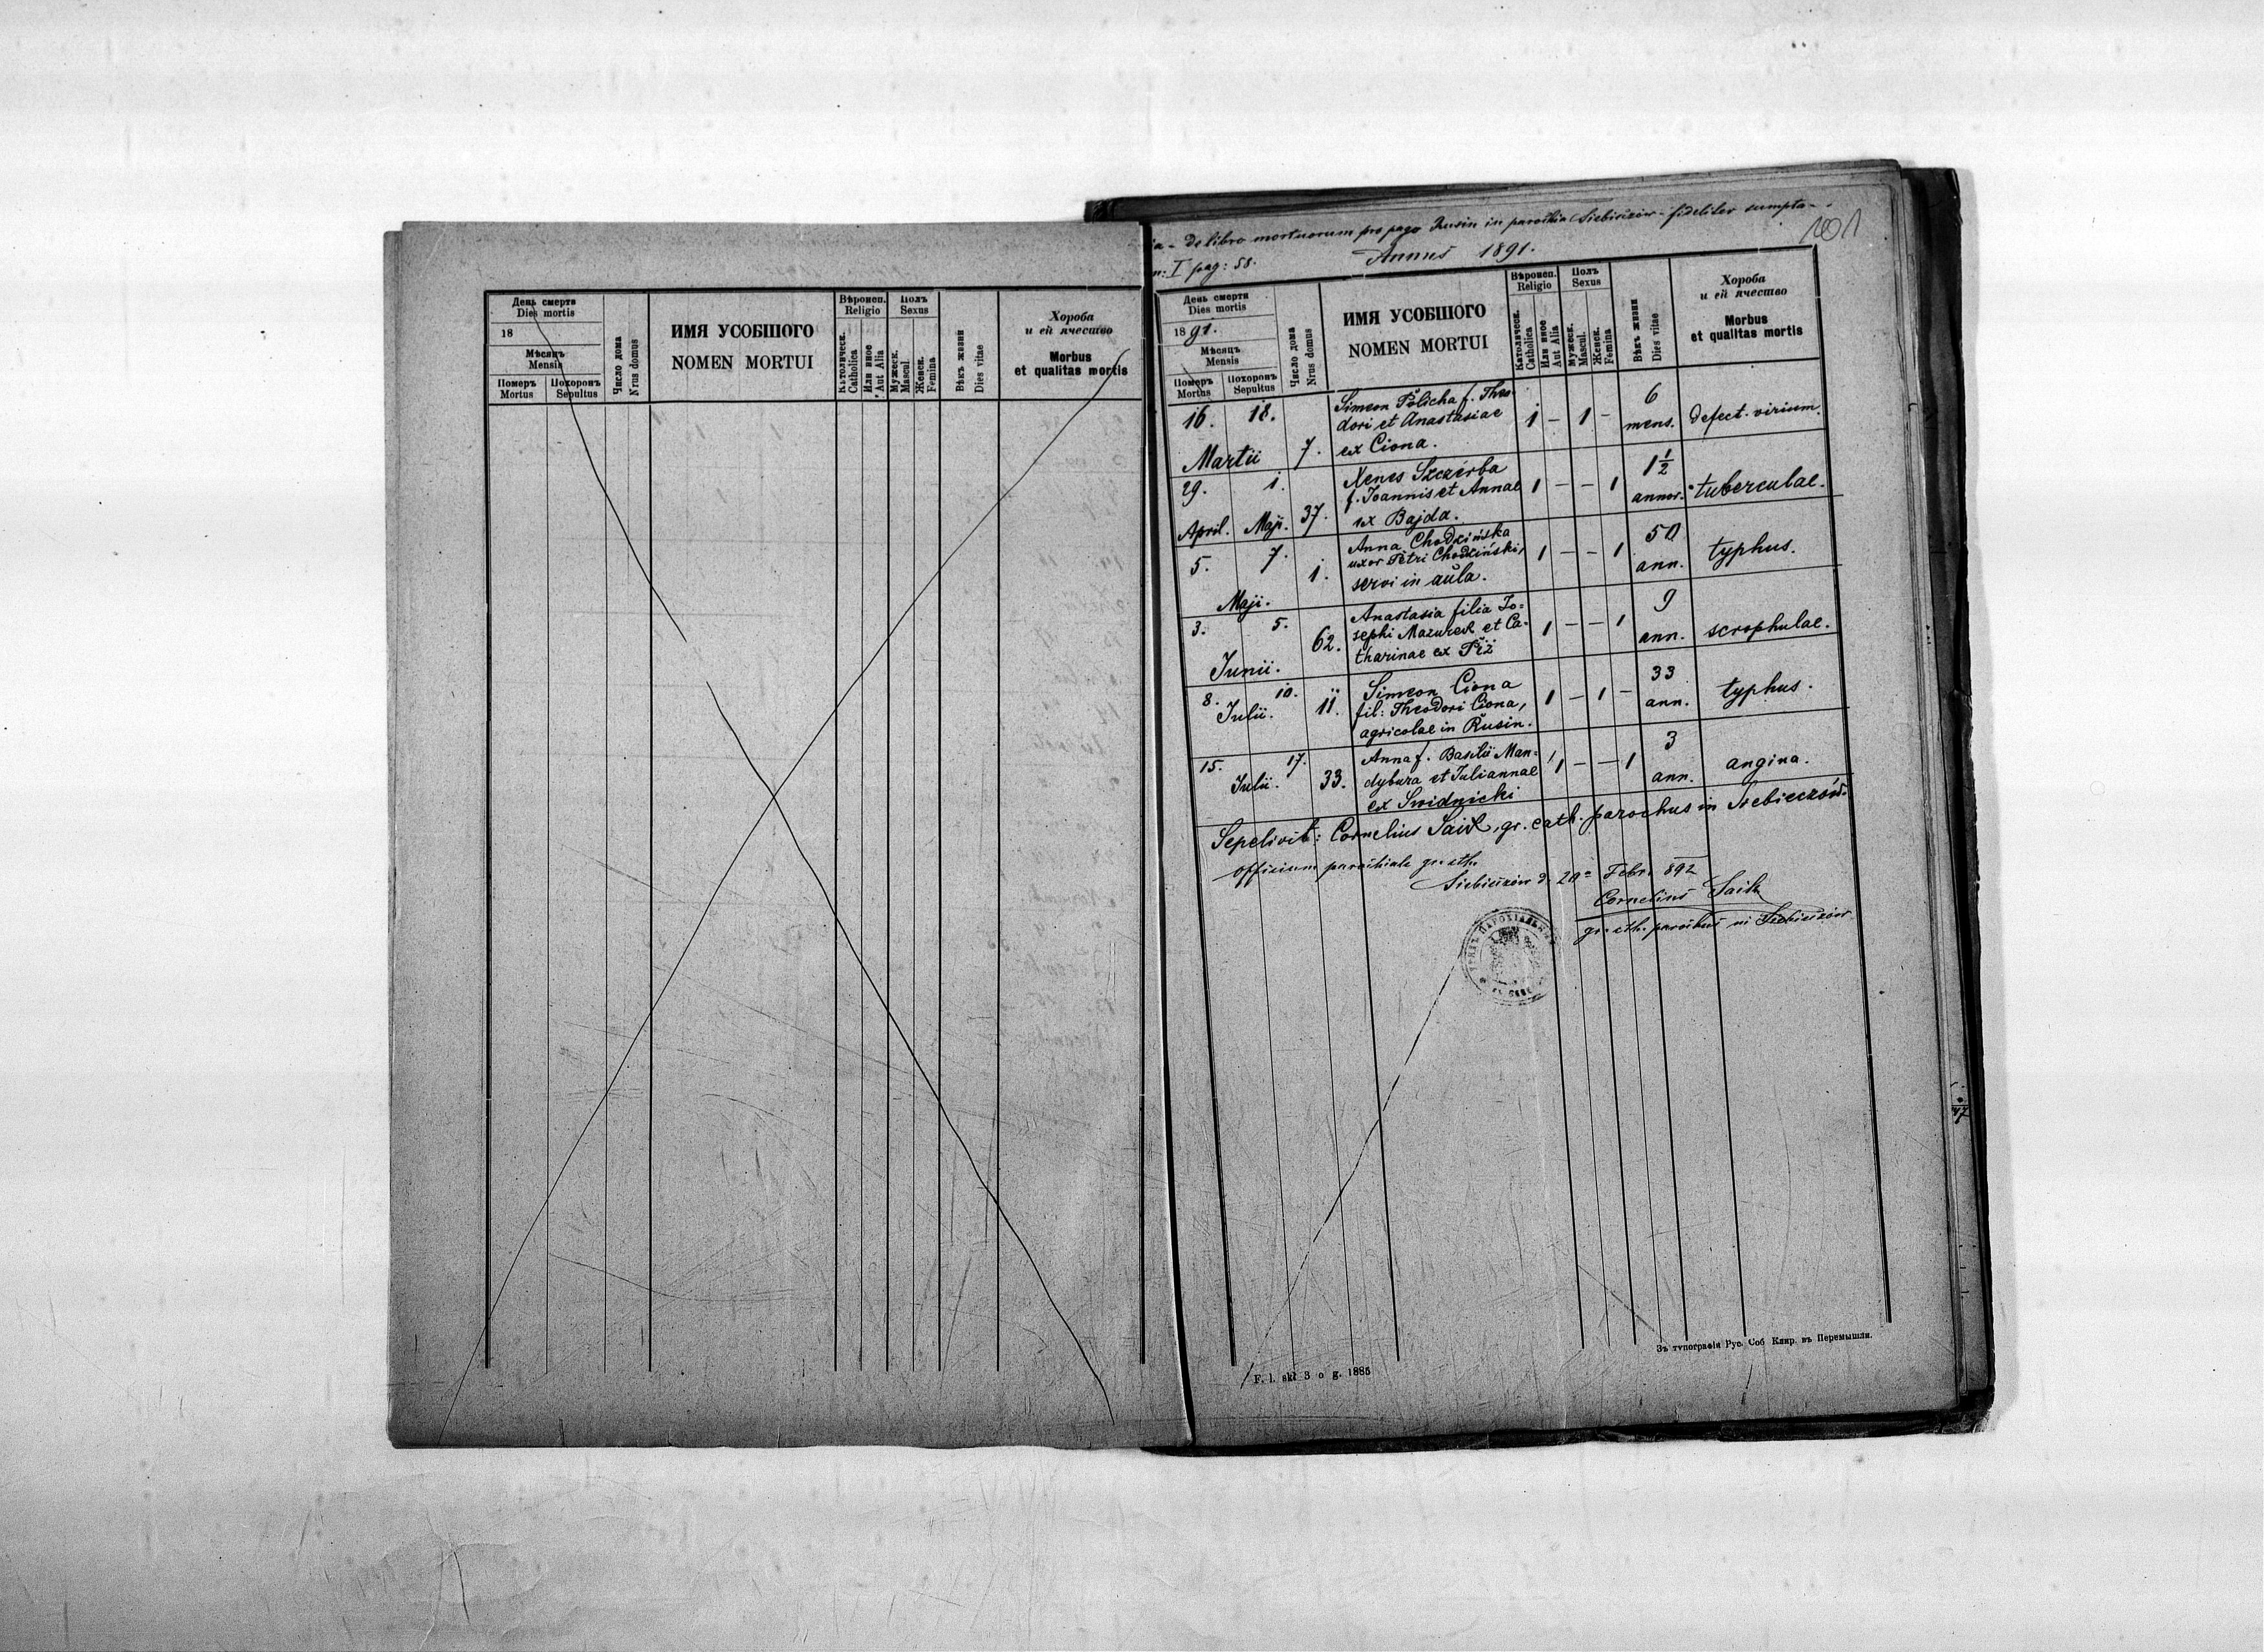 День смерти
Dies mortis
18
Мѣсяцъ
Mensis
Померъ
Mortus
Похоронъ
Sepultus
Число дома
Nrus domus
ИМЯ УСОБШОГО
NOMEN MORTUI
Вѣроисп.
Religio
Католическ.
Catholica
Или иное
Aut Alia
Полъ
Sexus
Мужеск.
Mascul.
Женск.
Femina
Вѣкъ жизни
Dies vitae
Хороба
и ей ячество
Morbus
et qualitas mortis
De libro mortuorum pro pago Rusin in parochia Siebieczów fideliter sumpta
I pag: 58.
Annus 1891.
101
День смерти
Dies mortis
1891.
Мѣсяцъ
Mensis
Померъ
Mortus
Похоронъ
Sepultus
Число дома
Nrus domus
ИМЯ УСОБШОГО
NOMEN MORTUI
Вѣроисп.
Religio
Католическ.
Catholica
Или иное
Aut Alia
Полъ
Sexus
Мужеск.
Mascul.
Женск.
Femina
Вѣкъ жизни
Dies vitae
Хороба
и ей ячество
Morbus
et qualitas mortis
16. 18. Simeon Policha f. Theo-
dori et Anastasiae 1 – 1 – 6 mens. defect. virium.
Martii 7. ex Ciona.
29. 1. Xenes Szczerba
f. Joannis et Annae 1 – – 1 1½ annor. tuberculae.
April. Maji. 37. ex Bajda.
5. 7. Anna Chodzińska
1. uxor Petri Chodziński, 1 – – 1 50 ann. typhus.
Maji. servi in aula.
3. 5. Anastasia filia Jo=
62. sephi Mazurek et Ca- 1 – – 1 9 ann. scrophulae.
Junii. tharinae ex Piż
8. 10. Simeon Ciona
Julii. 11. fil: Theodori Ciona, 1 – 1 – 33 ann. typhus.
agricolae in Rusin.
15. 17. Anna f. Basilii Man=
Julii. 33. dybura et Juliannae 1 – – 1 3 ann. angina.
ex Swidnicki
Sepelivit: Cornelius Saik, gr. cath. parochus in Siebieczów.
Officium parochiale gr. cth.
Siebieczów d. 20 Febr. 892
Cornelius Saik
gr. cth. parochus in Siebieczów
F. l. skł 3 o g. 1885
Зъ типографіи Рус. Соб Клир. въ Перемышли.